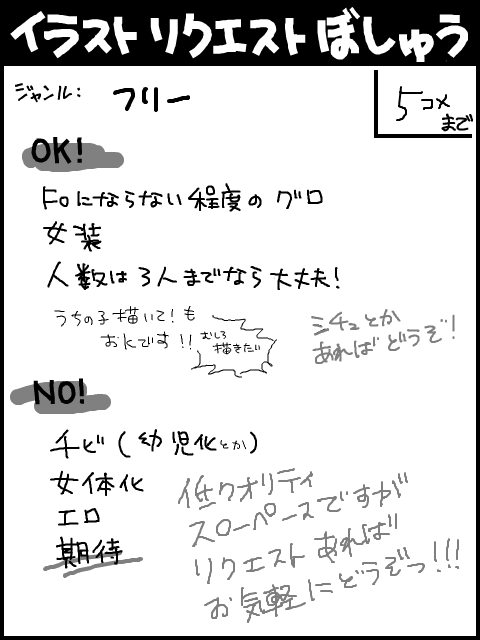 イラストリクエストぼしゅう
ジャンル: フリー
5コメ
まで
OK!
Foにならない程度のグロ
女装
人数は3人までなら大丈夫!
うちの子描いて!も
おkです!!
むしろ
描きたい
シチュとか
あればどうぞ!
NO!
チビ(幼児化とか)
女体化
エロ
期待
低クオリティ
スローペースですが
リクエストあれば
お気軽にどうぞっ!!!